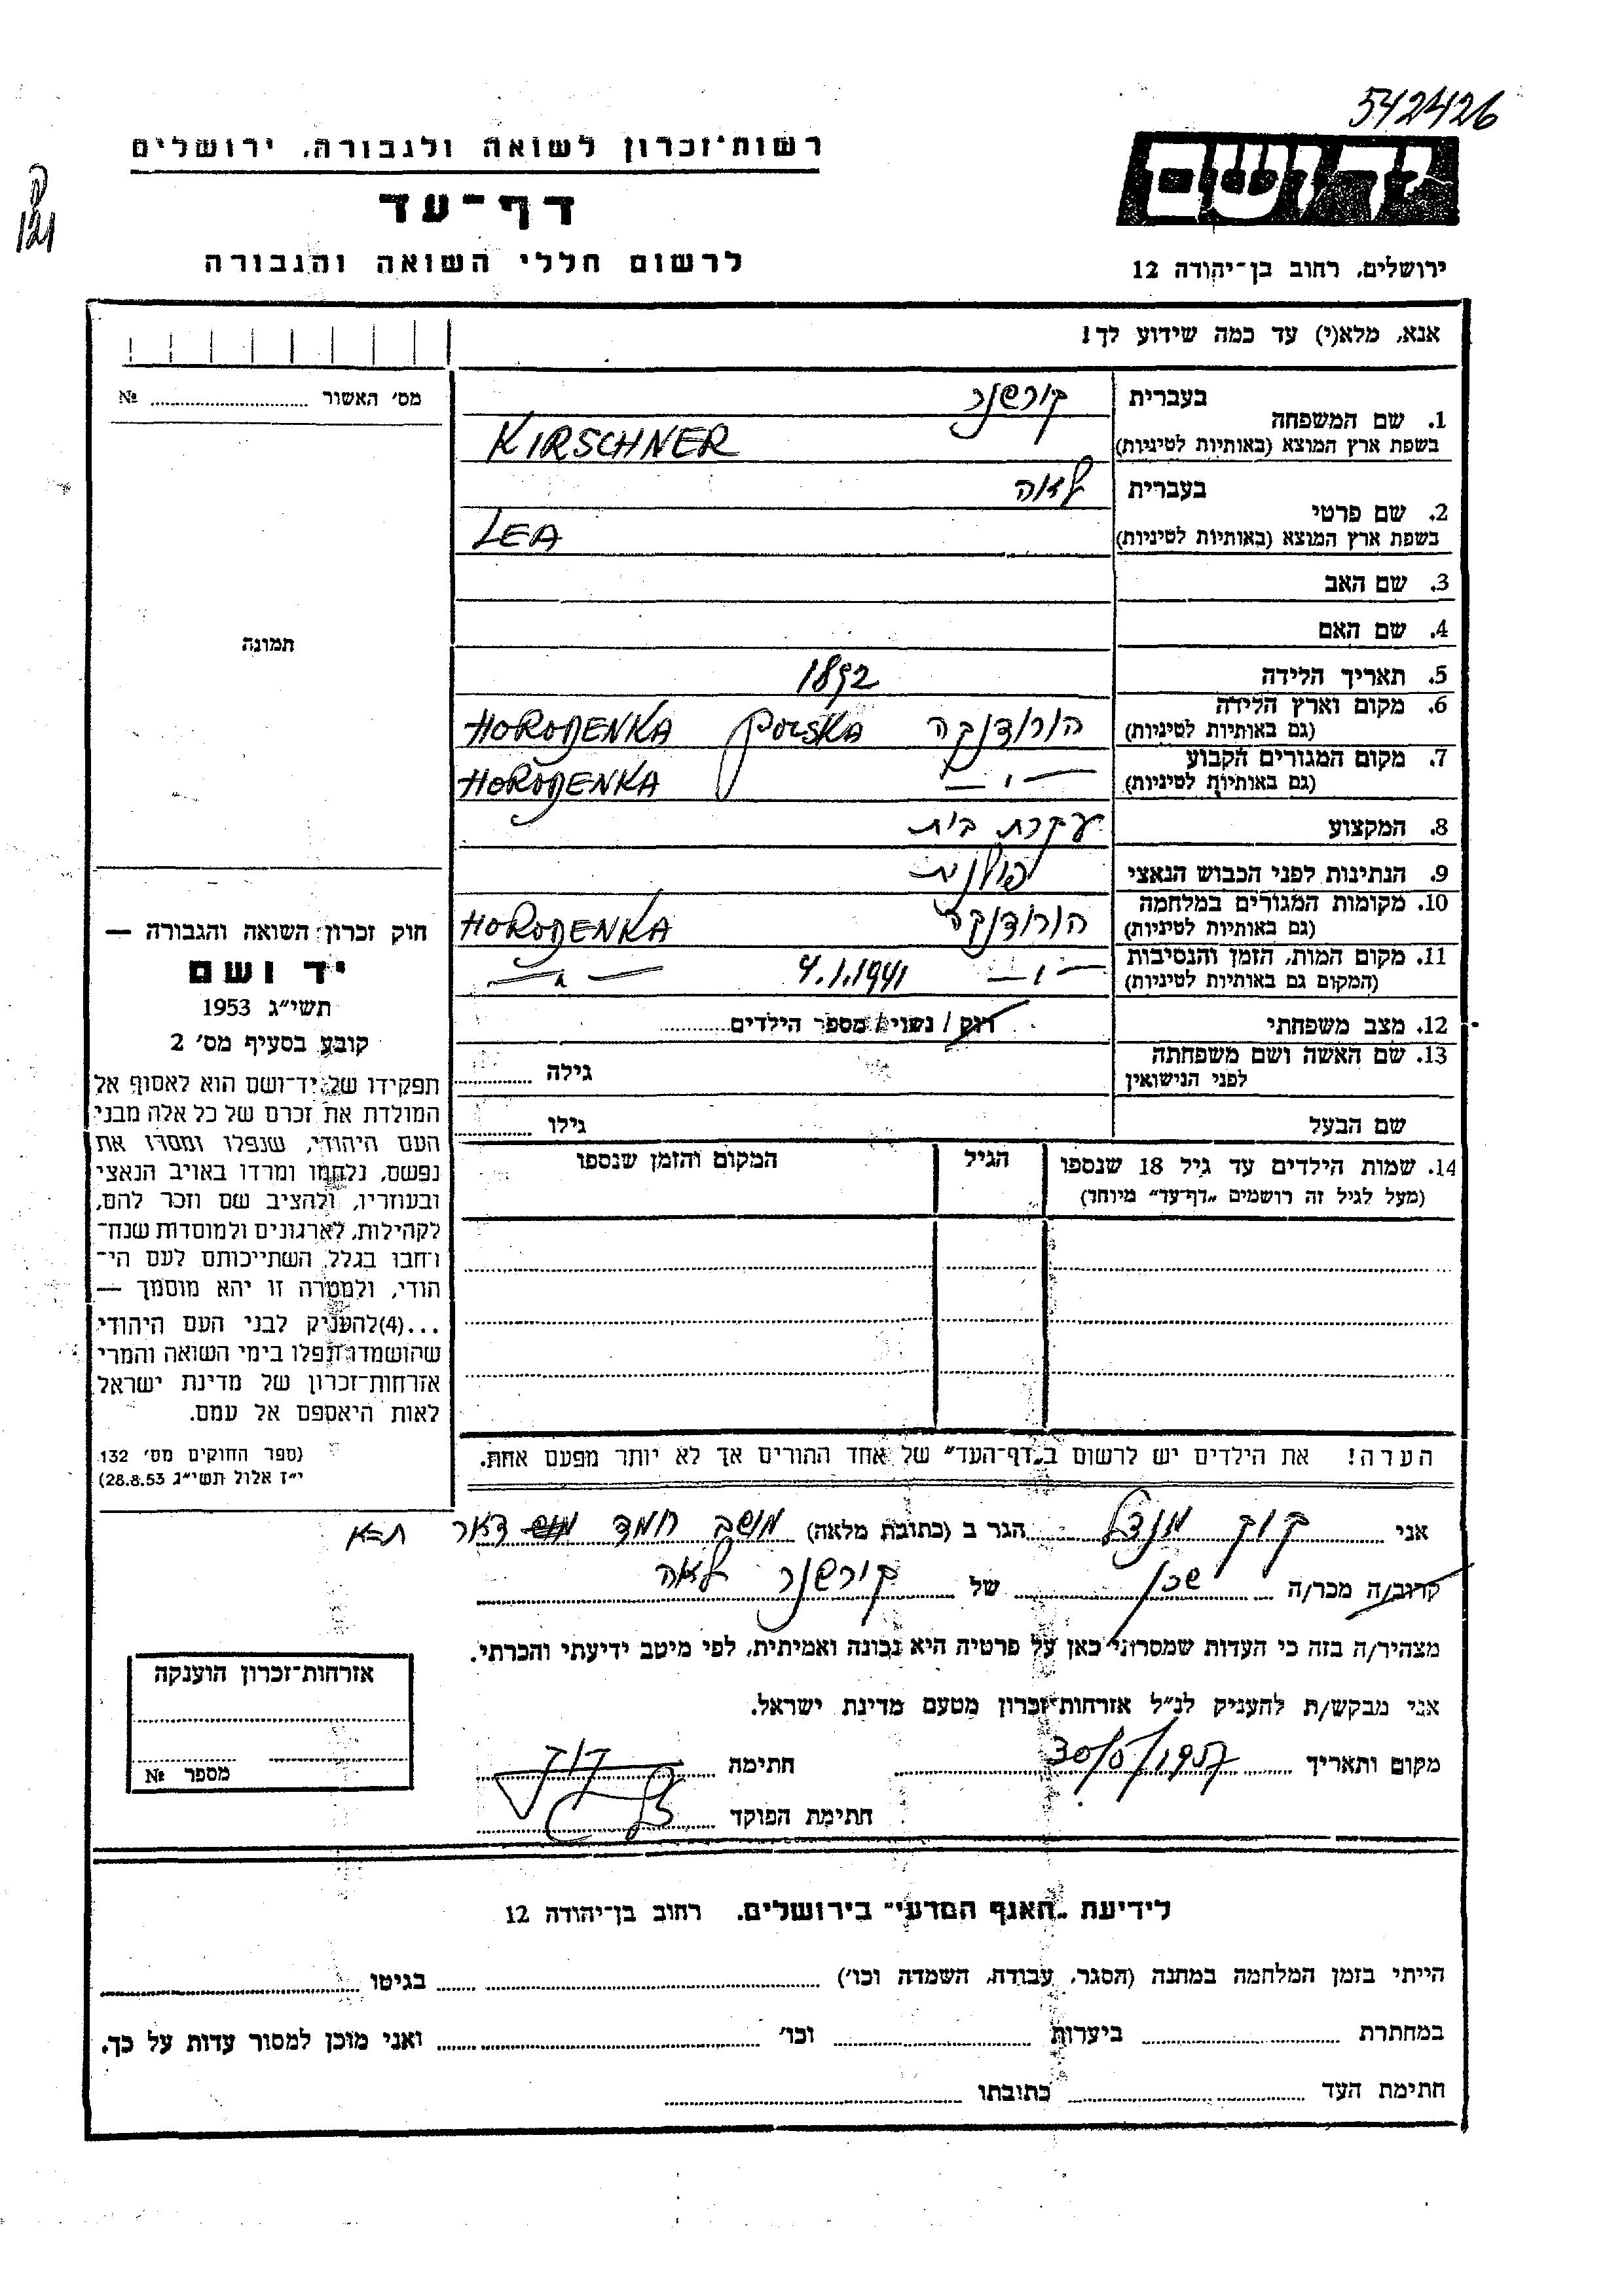 542426
רשות־זכרון לשואה ולגבורה, ירושלים
דף־עד
לרשום חללי השואה והגבורה
יד ושם
ירושלים, רחוב בן־יהודה 12
אנא, מלא(י) עד כמה שידוע לך!
מס׳ האשור ........ №
תמונה
1. שם המשפחה
בעברית קירשנר
בשפת ארץ המוצא (באותיות לטיניות) KIRSCHNER
2. שם פרטי
בעברית לאה
בשפת ארץ המוצא (באותיות לטיניות) LEA
3. שם האב
4. שם האם
5. תאריך הלידה 1892
6. מקום וארץ הלידה
(גם באותיות לטיניות) הורודנקה POLSKA HORODENKA
7. מקום המגורים הקבוע
(גם באותיות לטיניות) — ״ — HORODENKA
8. המקצוע עקרת בית
9. הנתינות לפני הכבוש הנאצי פולנית
10. מקומות המגורים במלחמה
(גם באותיות לטיניות) הורודנקה HORODENKA
11. מקום המות, הזמן והנסיבות
(המקום גם באותיות לטיניות) — ״ — 4.1.1941 — ״ —
12. מצב משפחתי רוק / נשוי / מספר הילדים........
13. שם האשה ושם משפחתה
לפני הנישואין גילה ........
שם הבעל גילו ........
14. שמות הילדים עד גיל 18 שנספו
(מעל לגיל זה רושמים „דף־עד״ מיוחד)
הגיל
המקום והזמן שנספו
הערה! את הילדים יש לרשום ב„דף־העד״ של אחד ההורים אך לא יותר מפעם אחת.
חוק זכרון השואה והגבורה —
יד ושם
תשי״ג 1953
קובע בסעיף מס׳ 2
תפקידו של יד־ושם הוא לאסוף אל
המולדת את זכרם של כל אלה מבני
העם היהודי, שנפלו ומסרו את
נפשם, נלחמו ומרדו באויב הנאצי
ובעוזריו, ולהציב שם וזכר להם,
לקהילות, לארגונים ולמוסדות שנח־
רבו בגלל השתייכותם לעם הי־
הודי, ולמטרה זו יהא מוסמך —
...(4) להעניק לבני העם היהודי
שהושמדו ונפלו בימי השואה והמרי
אזרחות־זכרון של מדינת ישראל
לאות היאספם אל עמם.
(ספר החוקים מס׳ 132
י״ז אלול תשי״ג 28.8.53)
אני קוק מנדל הגר ב (כתובת מלאה) מושב חמד דאר ת״א
קרוב/ה מכר/ה שכן של קירשנר לאה
מצהיר/ה בזה כי העדות שמסרתי כאן על פרטיה היא נכונה ואמיתית, לפי מיטב ידיעתי והכרתי.
אני מבקש/ת להעניק לנ״ל אזרחות־זכרון מטעם מדינת ישראל.
מקום ותאריך 30/5/1957 חתימה
חתימת הפוקד
אזרחות־זכרון הוענקה
מספר №
לידיעת „האגף המדעי״ בירושלים, רחוב בן־יהודה 12
הייתי בזמן המלחמה במחנה (הסגר, עבודה, השמדה וכו׳) ........ בגיטו ........
במחתרת ........ ביערות ........ וכו׳ ........ ואני מוכן למסור עדות על כך.
חתימת העד ........ כתובתו ........